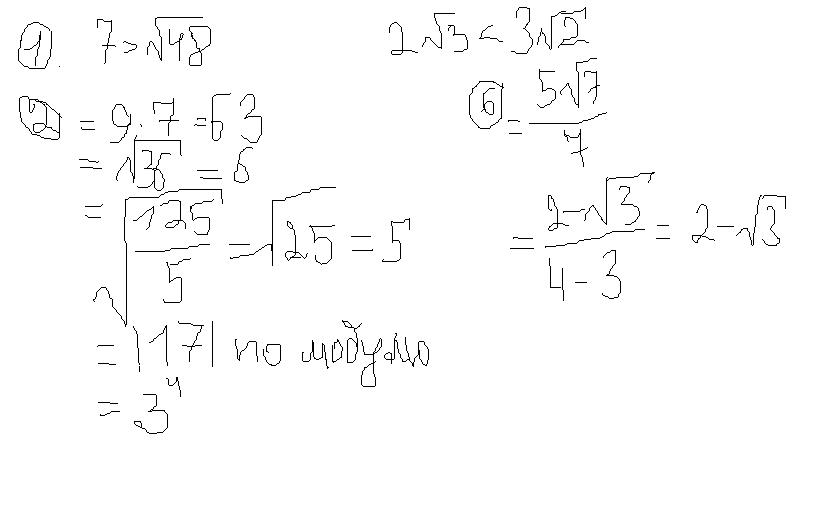 1. 7 > √48
2√3 < 3√2
2 = 9·7 = 63
= √36 = 6
= √(125/5) = √25 = 5
= |17| по модулю
= 3⁴
6 = 5√7/7
= (2-√3)/(4-3) = 2-√3